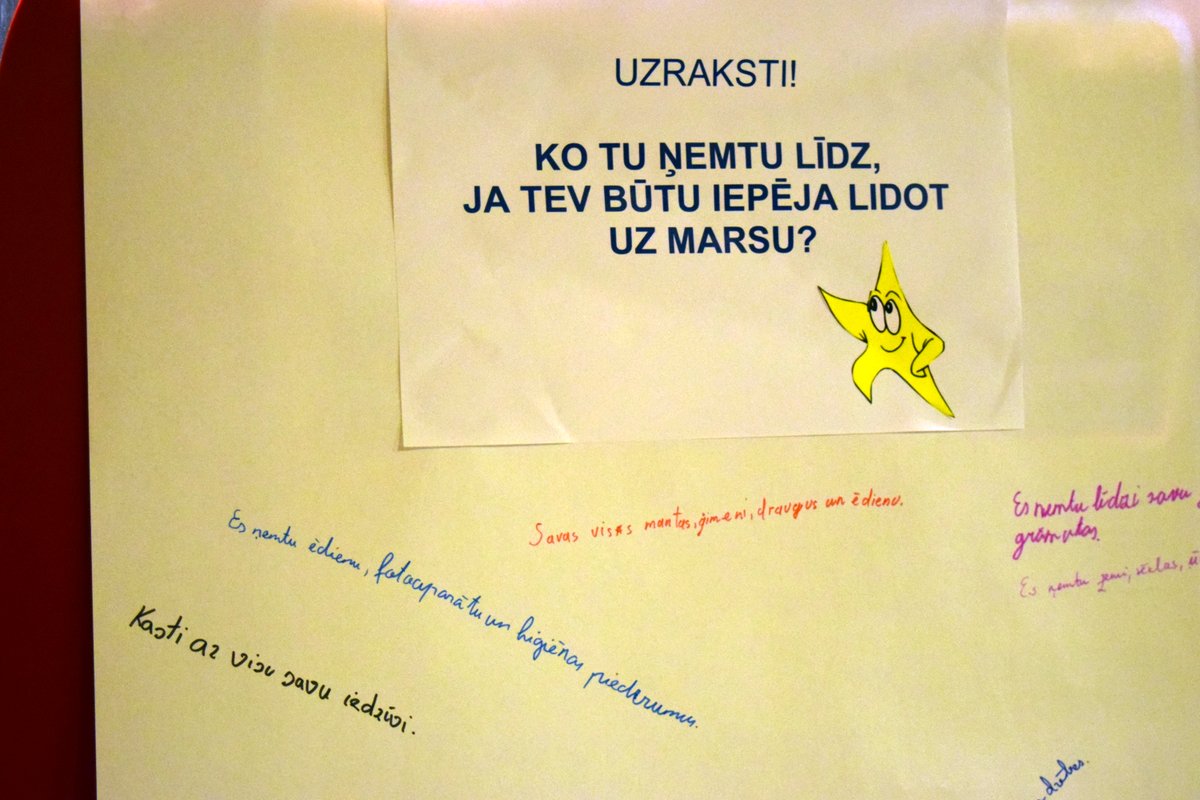 UZRAKSTI!
KO TU ŅEMTU LĪDZ,
JA TEV BŪTU IEPĒJA LIDOT
UZ MARSU?
Savas visas mantas, ģimeni, draugus un ēdienu.
Es ņemtu līdzi savu
grāmatas.
Es ņemtu zemi, sēklas,
Es ņemtu ēdienu, fotoaparātu un higiēnas piederumus.
Kasti az visu savu iedzīvi.
drēbes.